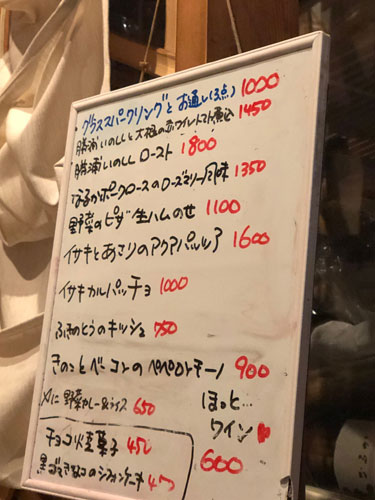 ・グラススパークリングとお通し(3点) 1000
勝浦いのししと大根の赤ワイントマト煮込 1450
勝浦いのしし ロースト 1800
ポークロースのローズマリー風味 1350
野菜のピザ 生ハムのせ 1100
イサキとあさりのアクアパッツァ 1600
イサキカルパッチョ 1000
ふきのとうのキッシュ 750
きのことベーコンのペペロンチーノ 900
〆に 野菜カレー&ライス 650
ほっと…
ワイン♥
600
チョコ焼菓子 450
黒ごまきなこのシフォンケーキ